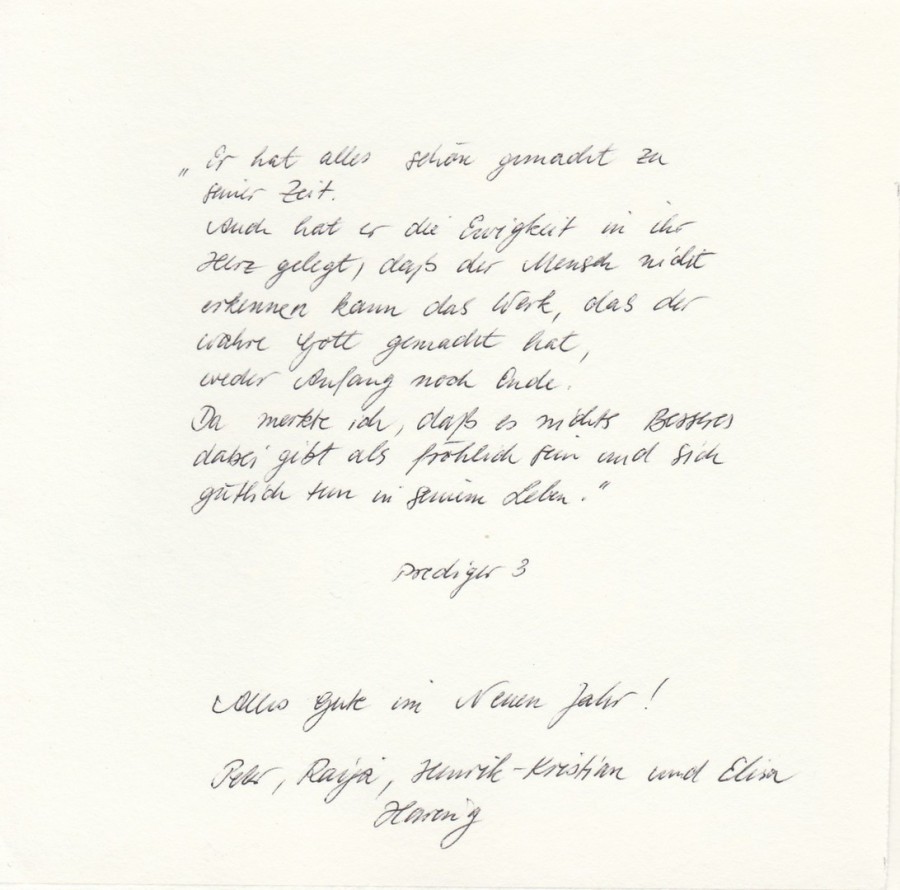 „Er hat alles schön gemacht zu
seiner Zeit.
Auch hat er die Ewigkeit in ihr
Herz gelegt, daß der Mensch nicht
erkennen kann das Werk, das der
wahre Gott gemacht hat,
weder Anfang noch Ende.
Da merkte ich, daß es nichts Besseres
dabei gibt als fröhlich sein und sich
gütlich tun in seinem Leben."
Prediger 3
Alles gute im Neuen Jahr!
Peter, Raija, Henrik-Kristian und Elisa